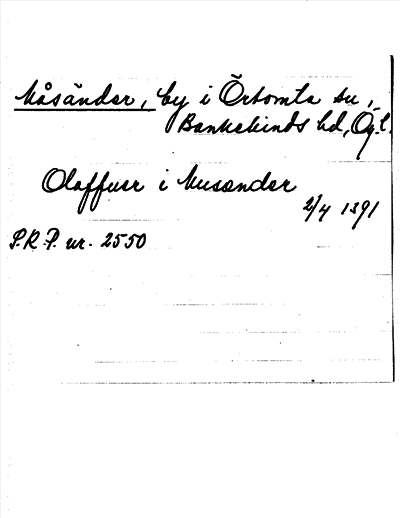 Måsänder, by i Örtomta sn,
Bankekinds hd, Ög.l.
Olaffuer i Musender
2/4 1391
S.R.P. nr. 2550